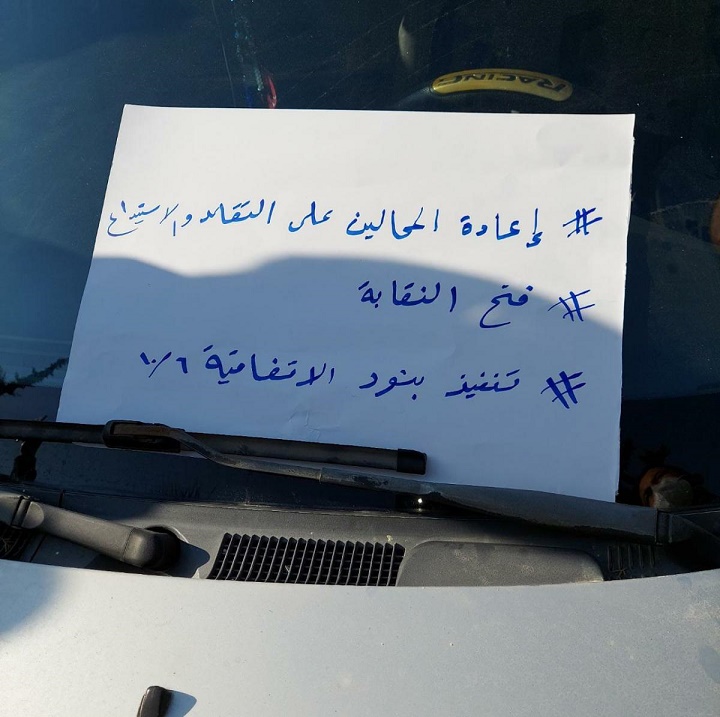 RACING
# إعادة المحالين على التقاعد والاستيداع
# فتح النقابة
# تنفيذ بنود الاتفاقية ١٠/٦